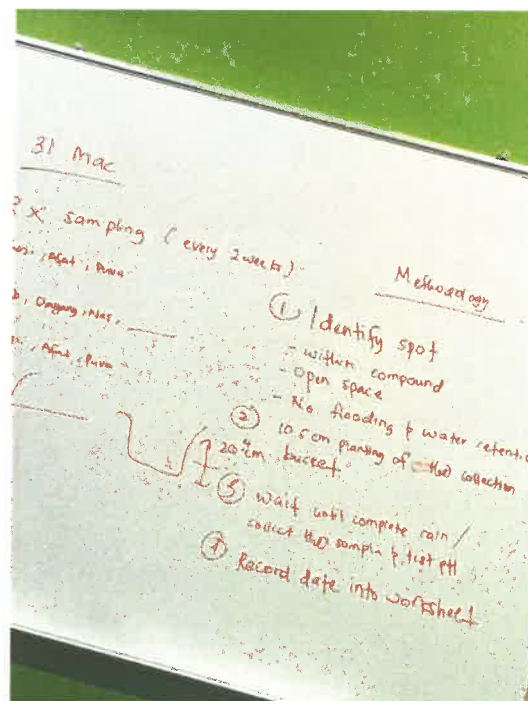 31 Mac
X sampling (every 2 weeks)
Afat, Puva
Dayang, Nas,
Afat, Puva
Methodology
① Identify spot
- within compound
- Open space
- No flooding & water retenti
② 10.5cm planting of the collection
bucket.
20 cm
③ Wait until complete rain /
collect the sample & test pH
④ Record date into worksheet